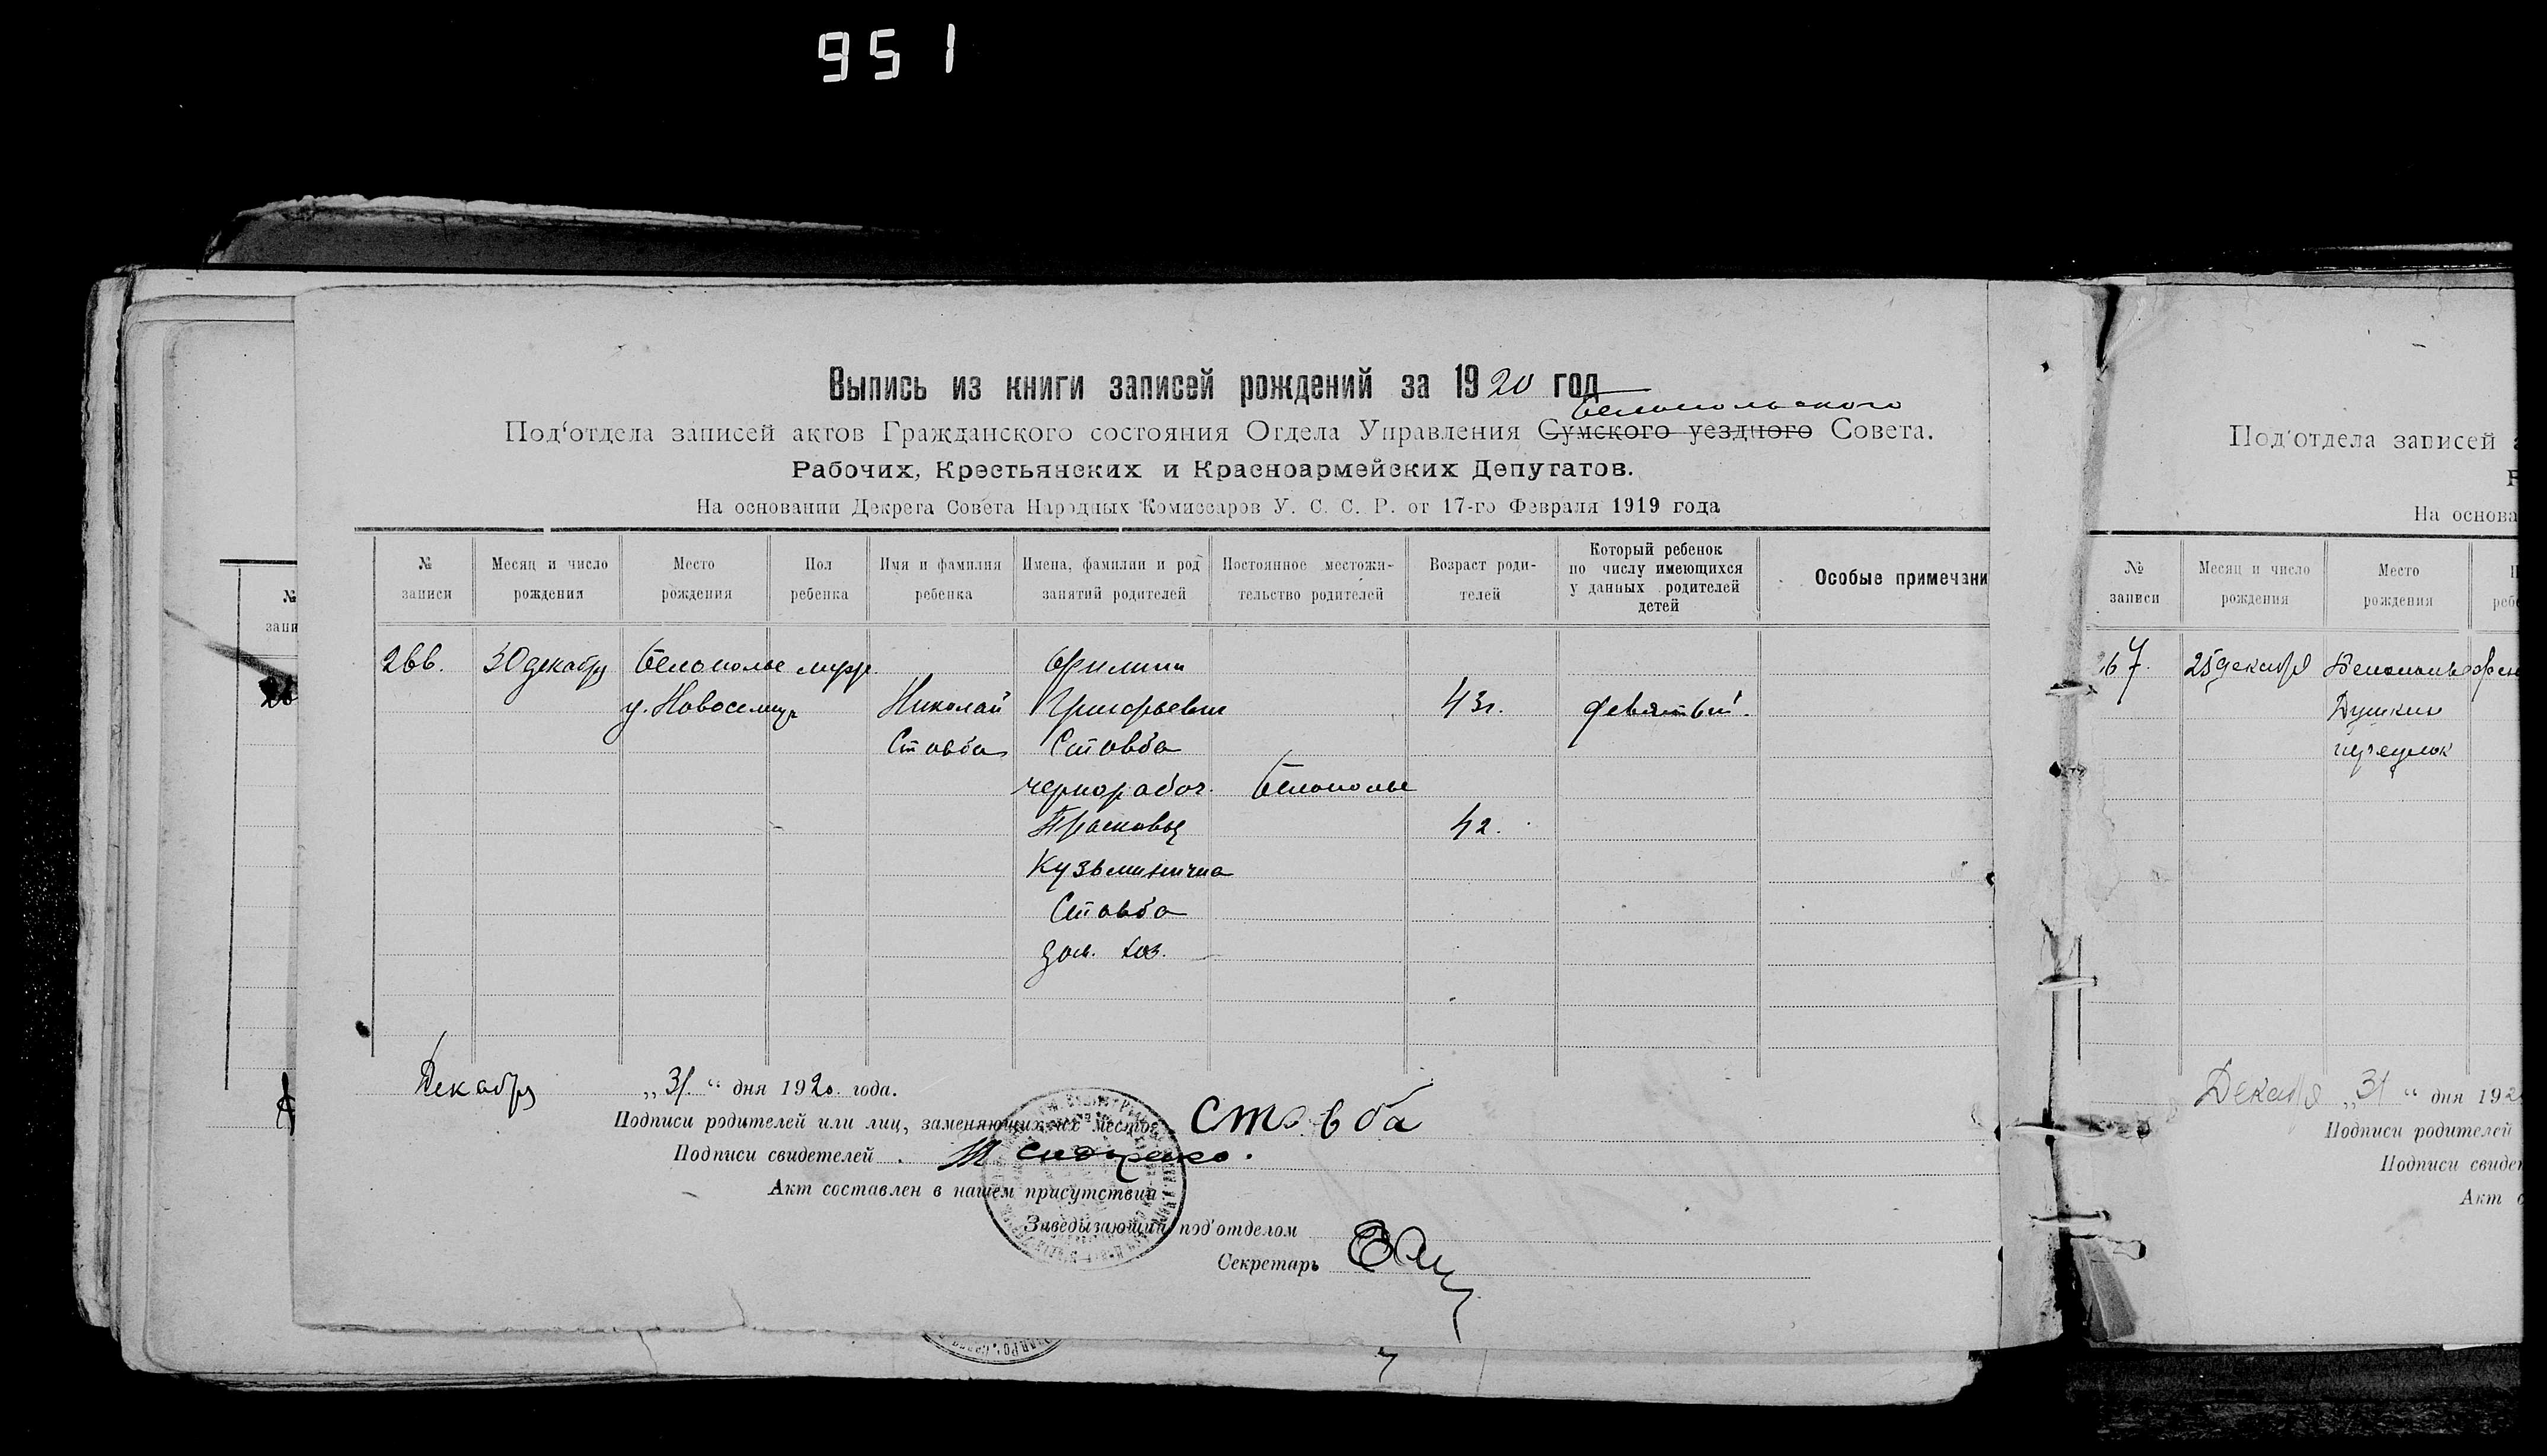 951
Выпись из книги записей рождений за 1920 год
Белопольского
Под'отдела записей актов Гражданского состояния Отдела Управления Сумского уездного Совета.
Рабочих, Крестьянских и Красноармейских Депутатов.
На основании Декрета Совета Народных Комиссаров У. С. С. Р. от 17-го Февраля 1919 года
№ записи
Месяц и число рождения
Место рождения
Пол ребенка
Имя и фамилия ребенка
Имена, фамилии и род занятий родителей
Постоянное местожительство родителей
Возраст родителей
Который ребенок по числу имеющихся у данных родителей детей
Особые примечани
266. 30 декабр Белополье муж. Филипп
Николай Григорьевич 43г. девятый.
Стовба Стовба
чернорабоч. Белополье
Прасковья 42.
Кузьминична
Стовба
дом. хоз.
Декабря „31.“ дня 1920. года.
Подписи родителей или лиц, заменяющих их место Стовба
Подписи свидетелей
Акт составлен в нашем присутствии
Заведывающий под'отделом
Секретарь
Под'отдела записей
На основа
№ записи
Месяц и число рождения
Место рождения
267. 25 декабря Белополье
Декабря „31“ дня 192
Подписи родителей
Подписи свидет
Акт с